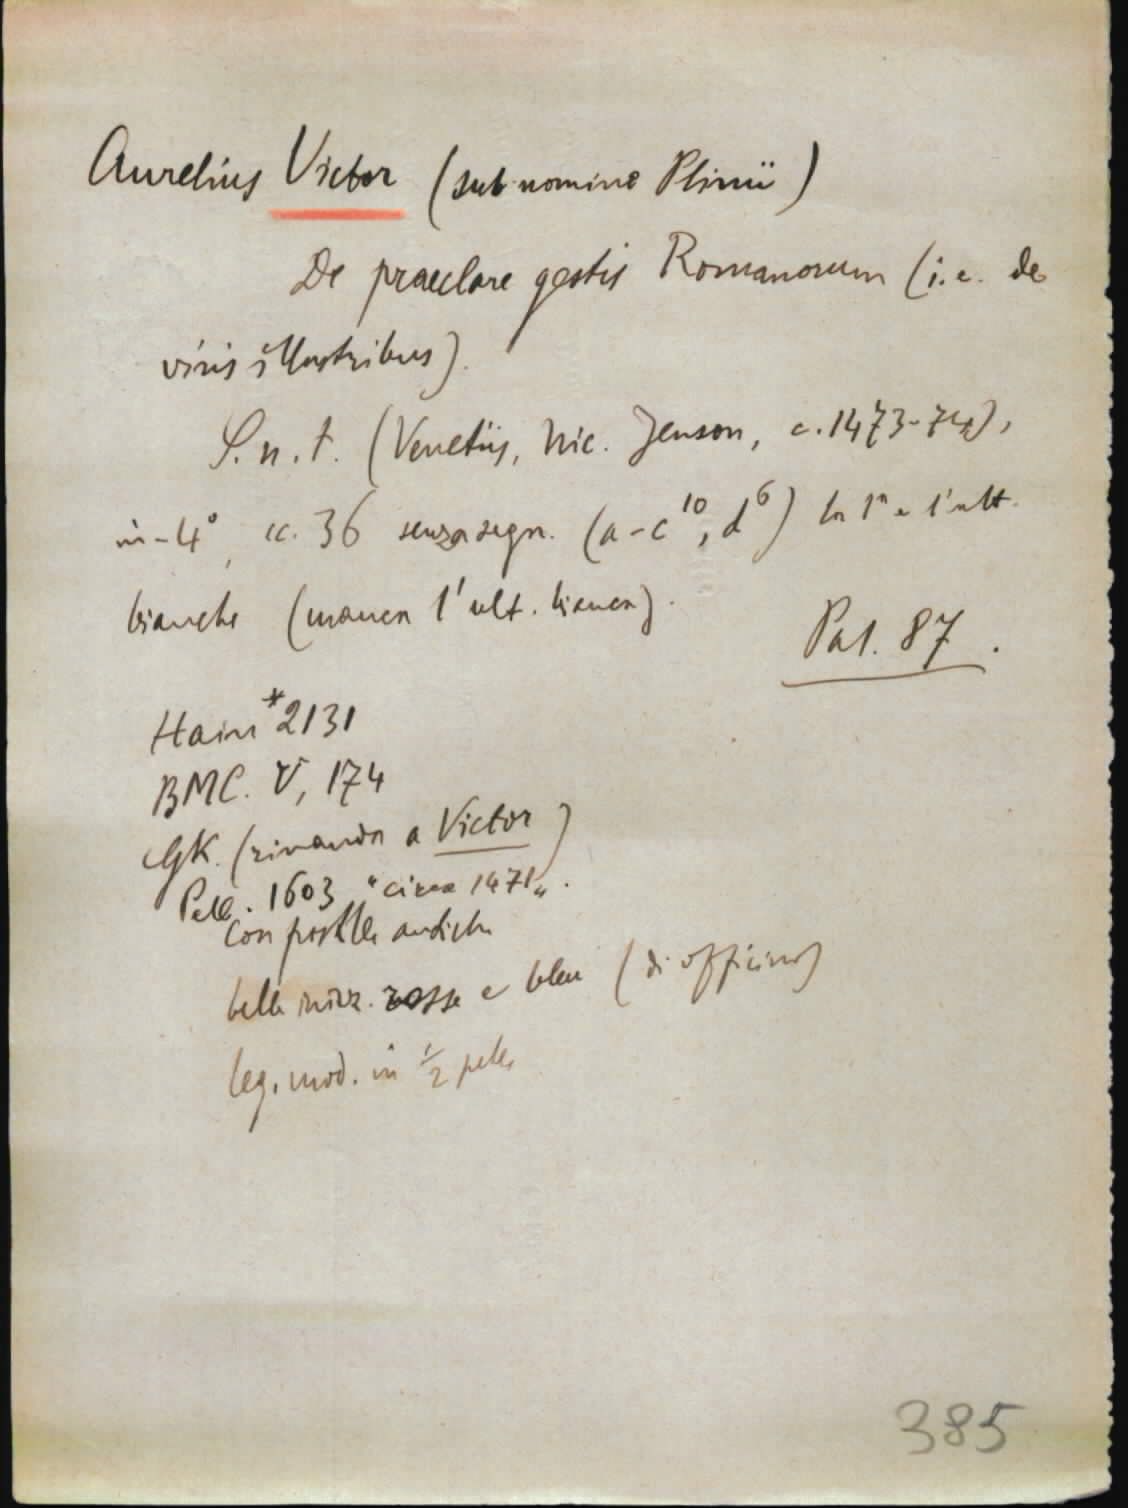 Aurelius Victor (sub nomine Plinii)
De praeclare gestis Romanorum (i.e. de
viris illustribus).
S.n.t. (Venetiis, Nic. Jenson, c. 1473-74),
in-4°, cc. 36 senza segn. (a-c¹⁰, d⁶) la 1ª e l'ult.
bianche (manca l'ult. bianca).
Pal. 87.
Hain *2131
BMC. V, 174
GK. (rimanda a Victor)
Pell. 1603 "circa 1471".
Con postille antiche
belle iniz. rosse e bleu (di officina)
leg. mod. in ½ pelle
385